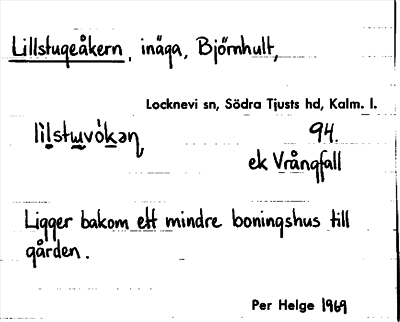 Lillstugeåkern, inäga, Björnhult,
Locknevi sn, Södra Tjusts hd, Kalm. l.
94.
ek Vrångfall
Ligger bakom ett mindre boningshus till
gården.
Per Helge 1969